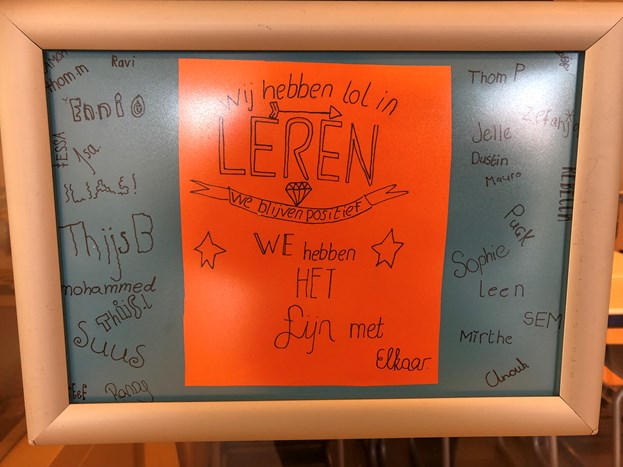 Simon
Thom.m
Ravi
Ennio
TESSA
Isa
ThijsB
mohammed
Thijs.l
Suus
Wij hebben lol in
LEREN
We blijven positief
WE hebben
HET
fijn met
Elkaar.
Thom P
Jelle
Dustin
Mauro
REBECCA
Puck
Sophie
Leen
SEM
Mirthe
Anouk